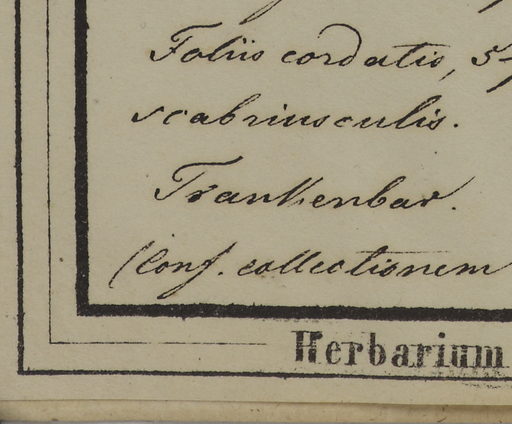 Foliis cordatis, 5-
scabriusculis.
Trankenbar.
(Conf. collectionem
Herbarium